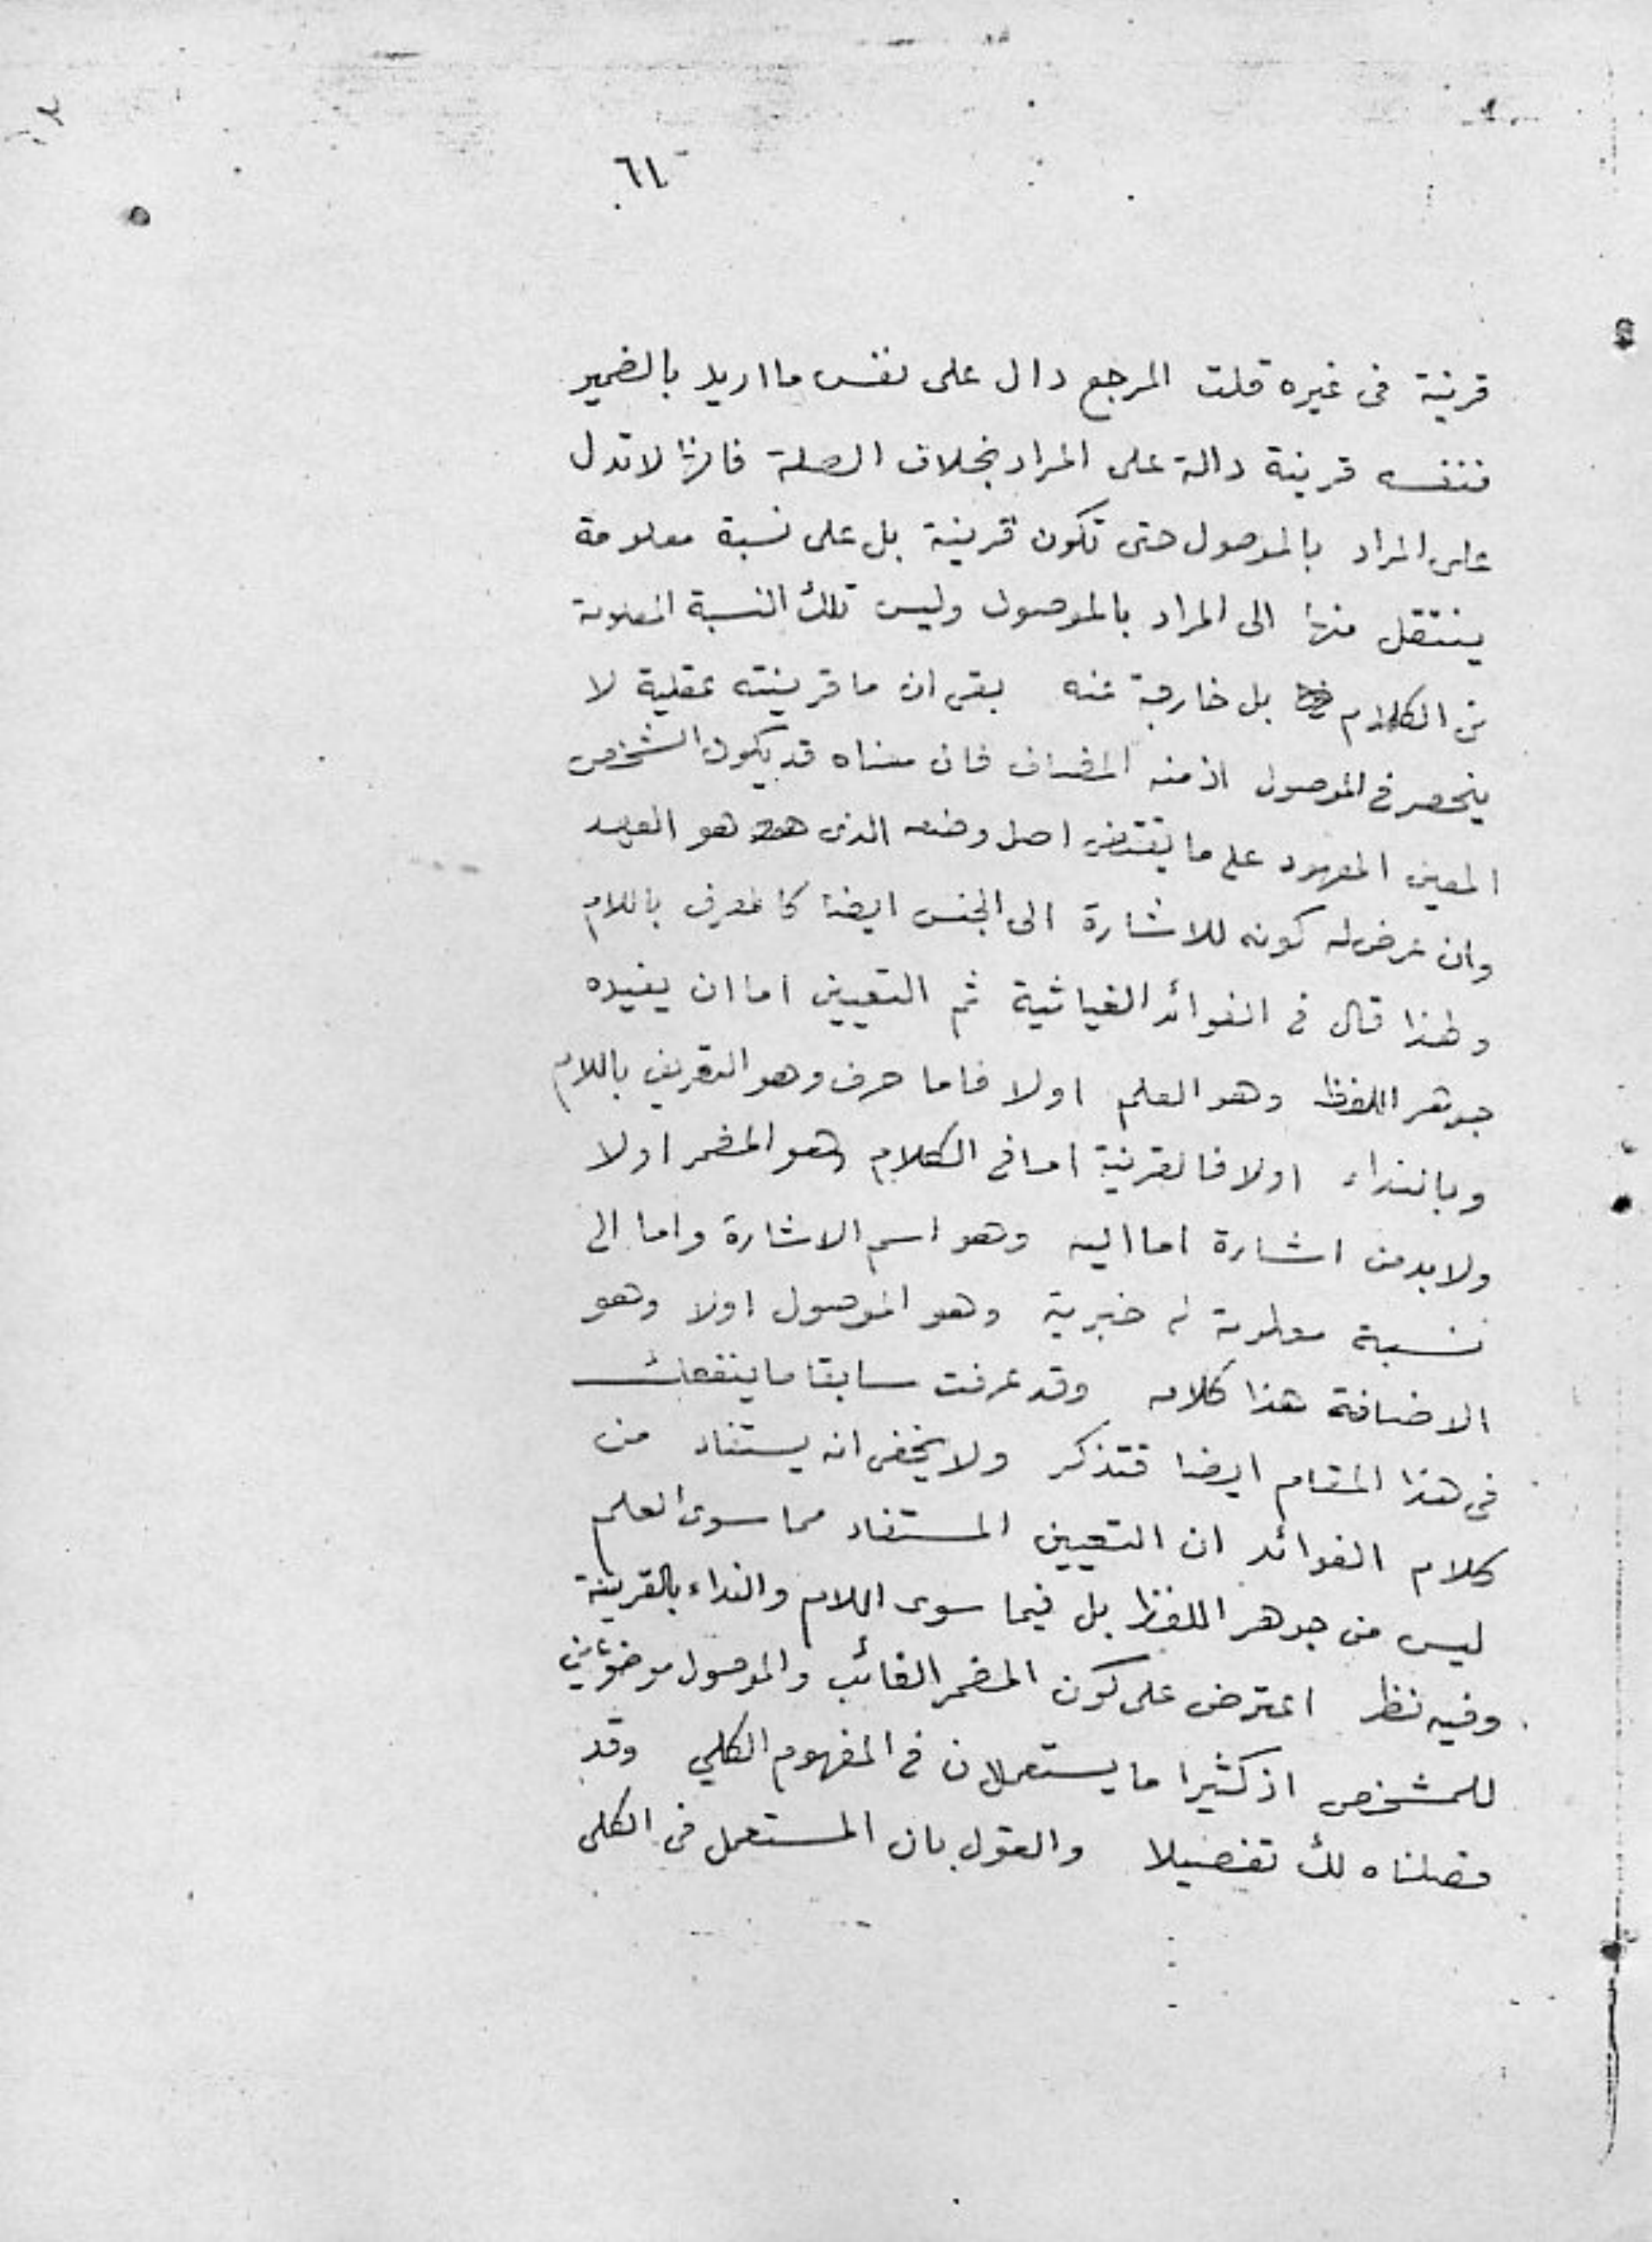 ٦١
قرينة فى غيره قلت المرجع دال على نفس ما اريد بالضمير
فنفسه قرينة دالة على المراد بخلاف الصلة فانها لا تدل
على المراد بالموصول حتى تكون قرينة بل على نسبة معلومة
ينتقل منها الى المراد بالموصول وليس تلك النسبة المعلومة
من الكلام بل خارجة عنه بقى ان ما قرينته عقلية لا
ينحصر فى الموصول اذ منه المضاف فان معناه قد يكون الشخص
المعين المعهود على ما يقتضى اصل وضعه الذى هو العهد
وان عرض له كونه للاشارة الى الجنس ايضا كالمعرف باللام
ولهذا قال فى الفوائد الغياثية ثم التعيين اما ان يفيده
جوهر اللفظ وهو العلم اولا فاما حرف وهو التعريف باللام
وبالنداء اولا فالقرينة اما فى الكلام وهو المضمر اولا
ولابد من اشارة اما اليه وهو اسم الاشارة واما الى
نسبة معلومة له خبرية وهو الموصول اولا وهو
الاضافة هذا كلامه وقد عرفت سابقا ما ينفعك
فى هذا المقام ايضا فتذكر ولا يخفى انه يستفاد من
كلام الفوائد ان التعيين المستفاد مما سوى العلم
ليس من جوهر اللفظ بل فيما سوى اللام والنداء بالقرينة
وفيه نظر اعترض على كون المضمر الغائب والموصول موضوعين
للمشخص اذ كثيرا ما يستعملان فى المفهوم الكلي وقد
فصلناه لك تفصيلا والقول بان المستعمل فى الكلى